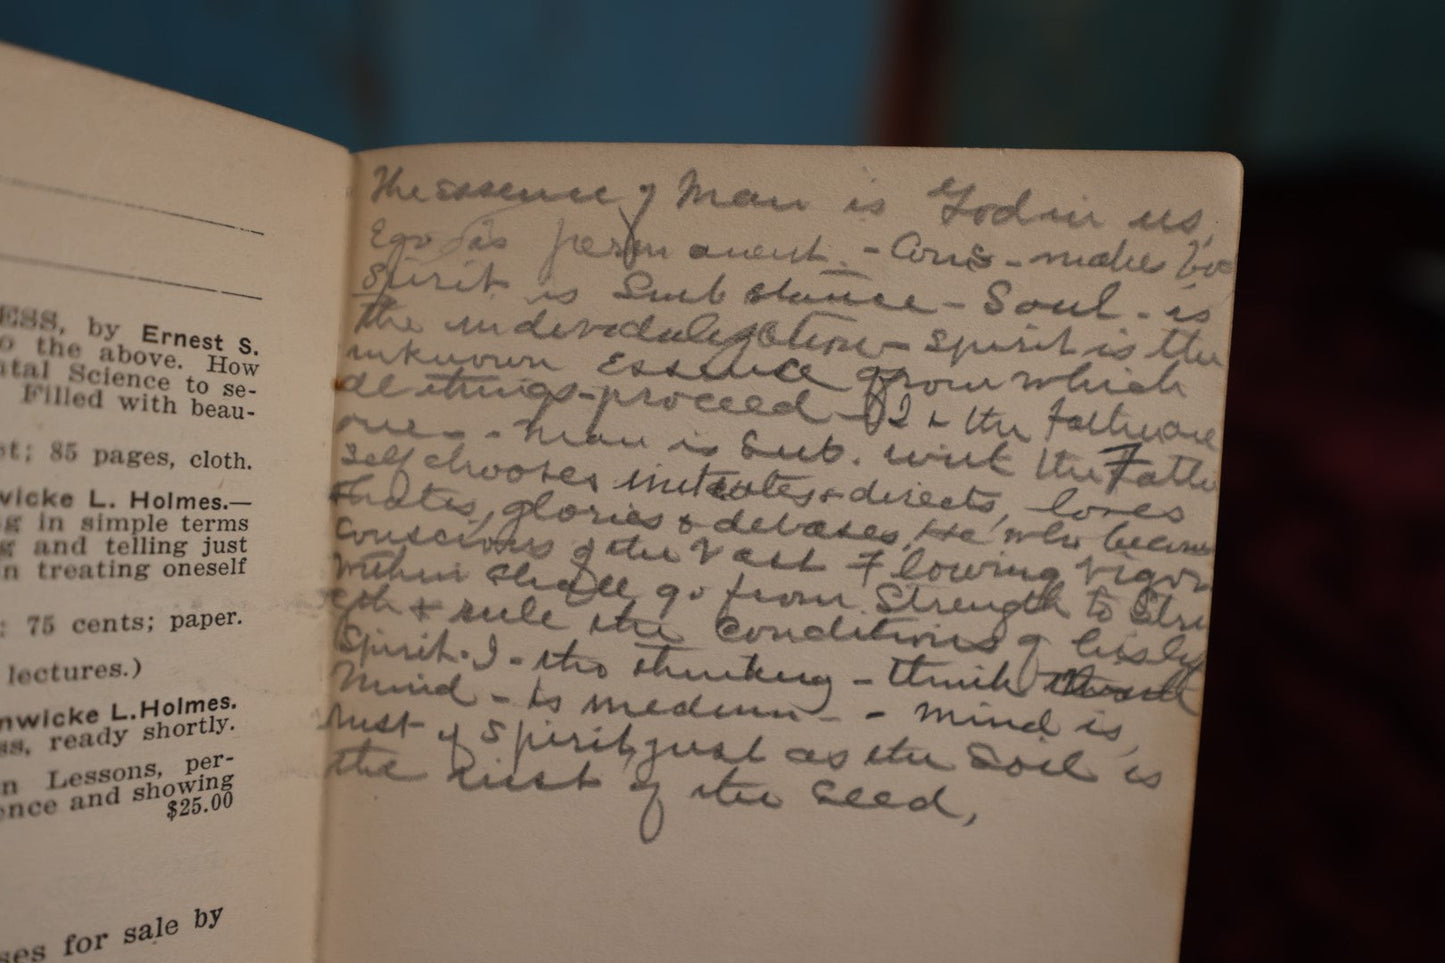 ESS, by Ernest S.
o the above. How
ntal Science to se-
Filled with beau-
st; 85 pages, cloth.
wicke L. Holmes.—
g in simple terms
g and telling just
n treating oneself
; 75 cents; paper.
lectures.)
nwicke L. Holmes.
ss, ready shortly.
n Lessons, per-
ence and showing
$25.00
ses for sale by
The essence of Man is God in us,
Ego is permanent. - Cons - makes
Spirit is Substance - Soul - is
the individulization - Spirit is the
unknown Essence from which
all things - proceed - I & the Father are
one - - Man is Sub. with the Father
self chooses initiates & directs, loves
& hates, glories & debases, He who becom
conscious of the Vast Flowing Vigor
within shall go from Strength to Stre
gth & rule the Conditions of his
Spirit. I - the thinking - think
Mind - is medium - - Mind is,
of Spirit, just as the Soil is
the of the Seed,